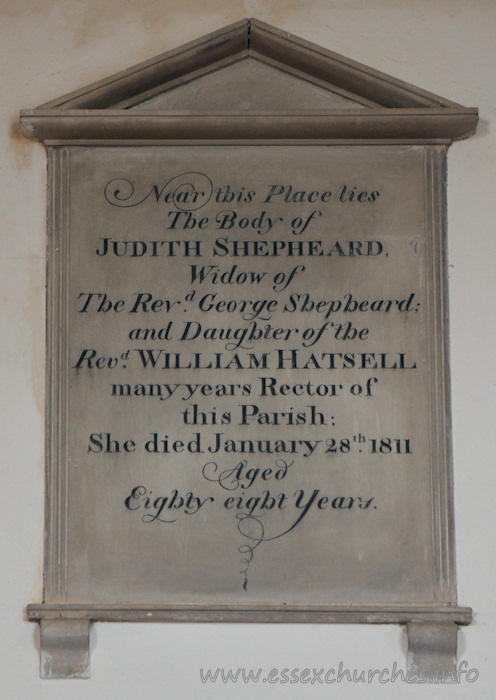 Near this Place lies
The Body of
JUDITH SHEPHEARD,
Widow of
The Revd. George Shepheard;
and Daughter of the
Revd. WILLIAM HATSELL
many years Rector of
this Parish;
She died January 28th. 1811
Aged
Eighty eight Years.
www.essexchurches.info